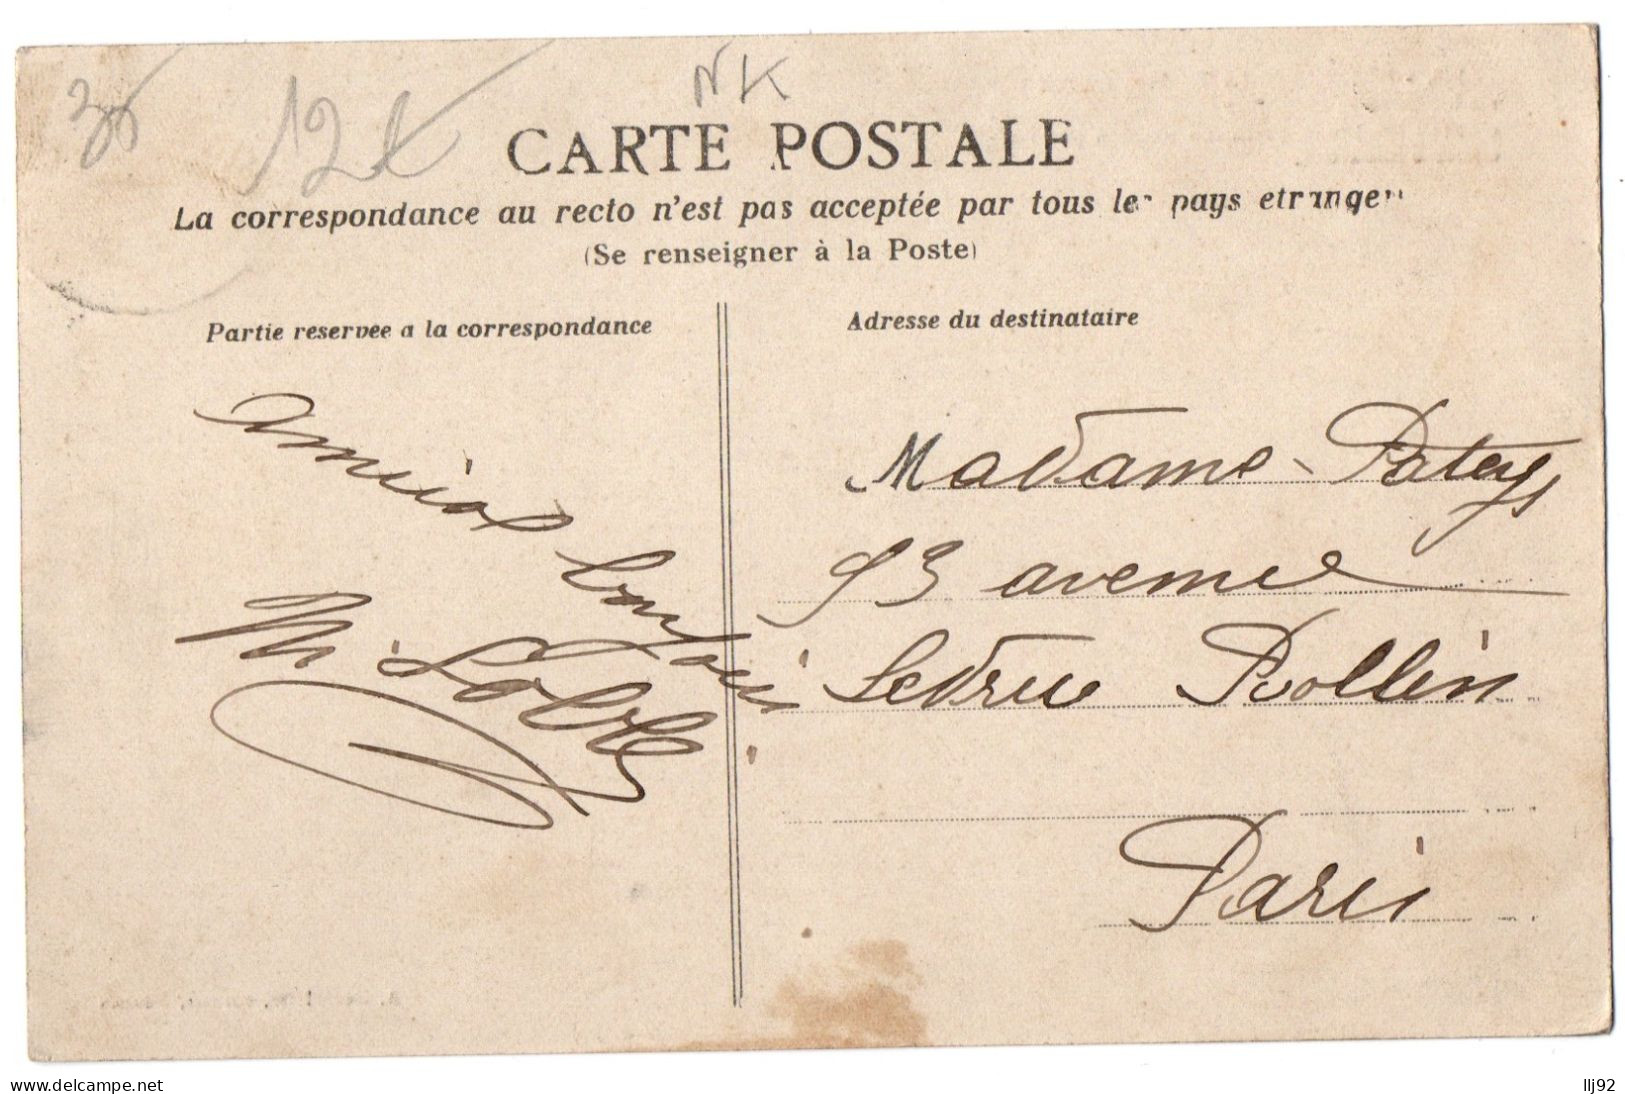 NK
12€
CARTE POSTALE
La correspondance au recto n'est pas acceptée par tous les pays etrangers
(Se renseigner à la Poste)
Partie reservee a la correspondance
Adresse du destinataire
amical bonjour
M. Soló
Madame Patey
93 avenue
Ledru Rollin
Paris
www.delcampe.net
llj92